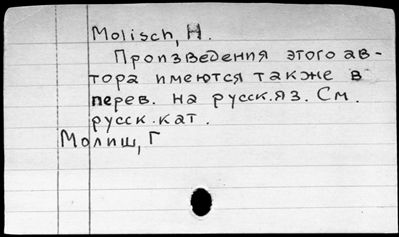 Molisch, H.
Произведения этого ав-
тора имеются также в
перев. на русск.яз. См.
русск.кат.
Молиш, Г